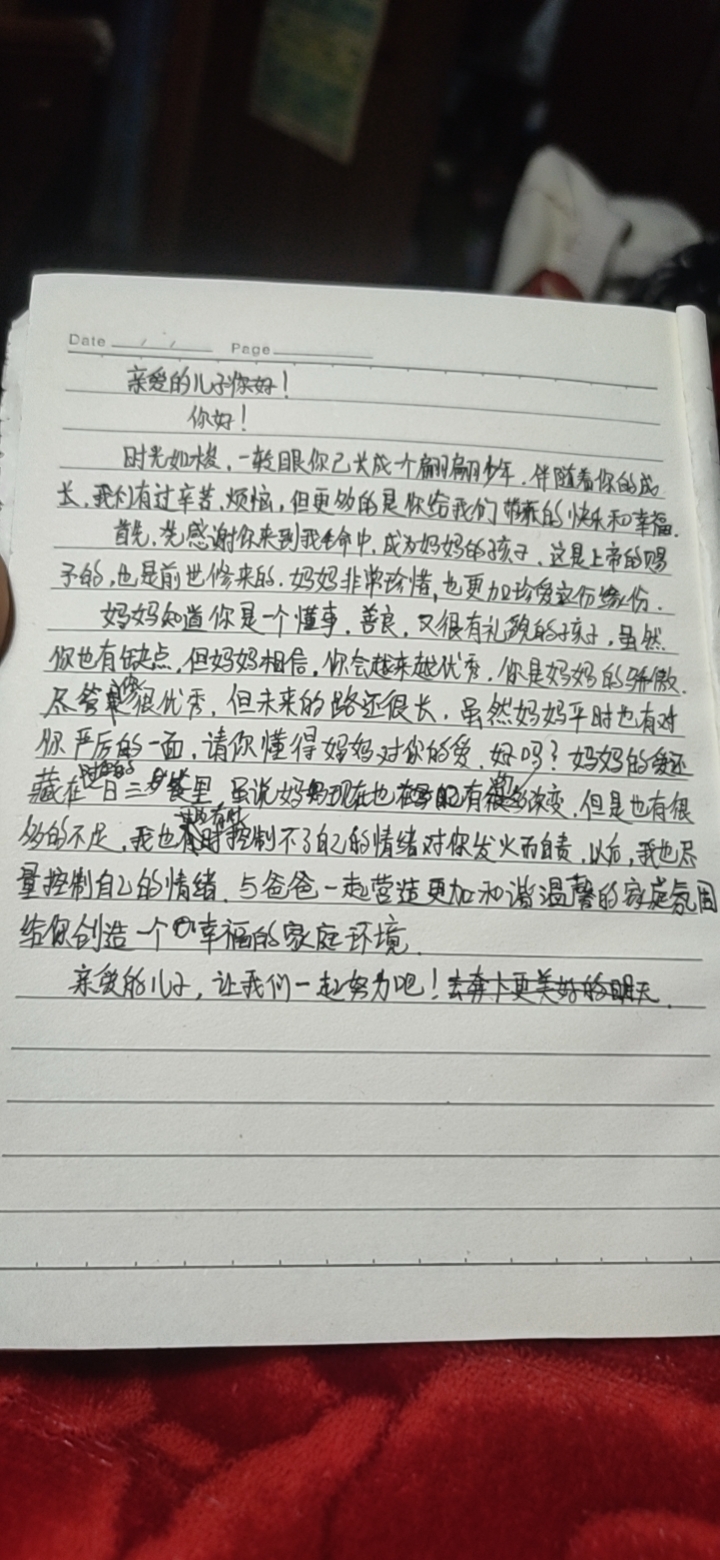 Date / / Page
亲爱的儿子你好！
你好！
时光如梭，一转眼你已长成个翩翩少年，伴随着你的成
长，我们有过辛苦、烦恼，但更多的是你给我们带来的快乐和幸福。
首先，先感谢你来到我生命中，成为妈妈的孩子，这是上帝的赐
予的，也是前世修来的，妈妈非常珍惜，也更加珍爱这份缘份。
妈妈知道你是一个懂事、善良，又很有礼貌的孩子，虽然
你也有缺点，但妈妈相信，你会越来越优秀，你是妈妈的骄傲。
尽管你很优秀，但未来的路还很长，虽然妈妈平时也有对
你严厉的一面，请你懂得妈妈对你的爱，好吗？妈妈的爱还
藏在一日三餐里，虽说妈妈现在也有很多改变，但是也有很
多的不足，我也有时控制不了自己的情绪对你发火而自责，以后，我也尽
量控制自己的情绪，与爸爸一起营造更加和谐温馨的家庭氛围
给你创造一个幸福的家庭环境。
亲爱的儿子，让我们一起努力吧！去奔卜更美好的明天。